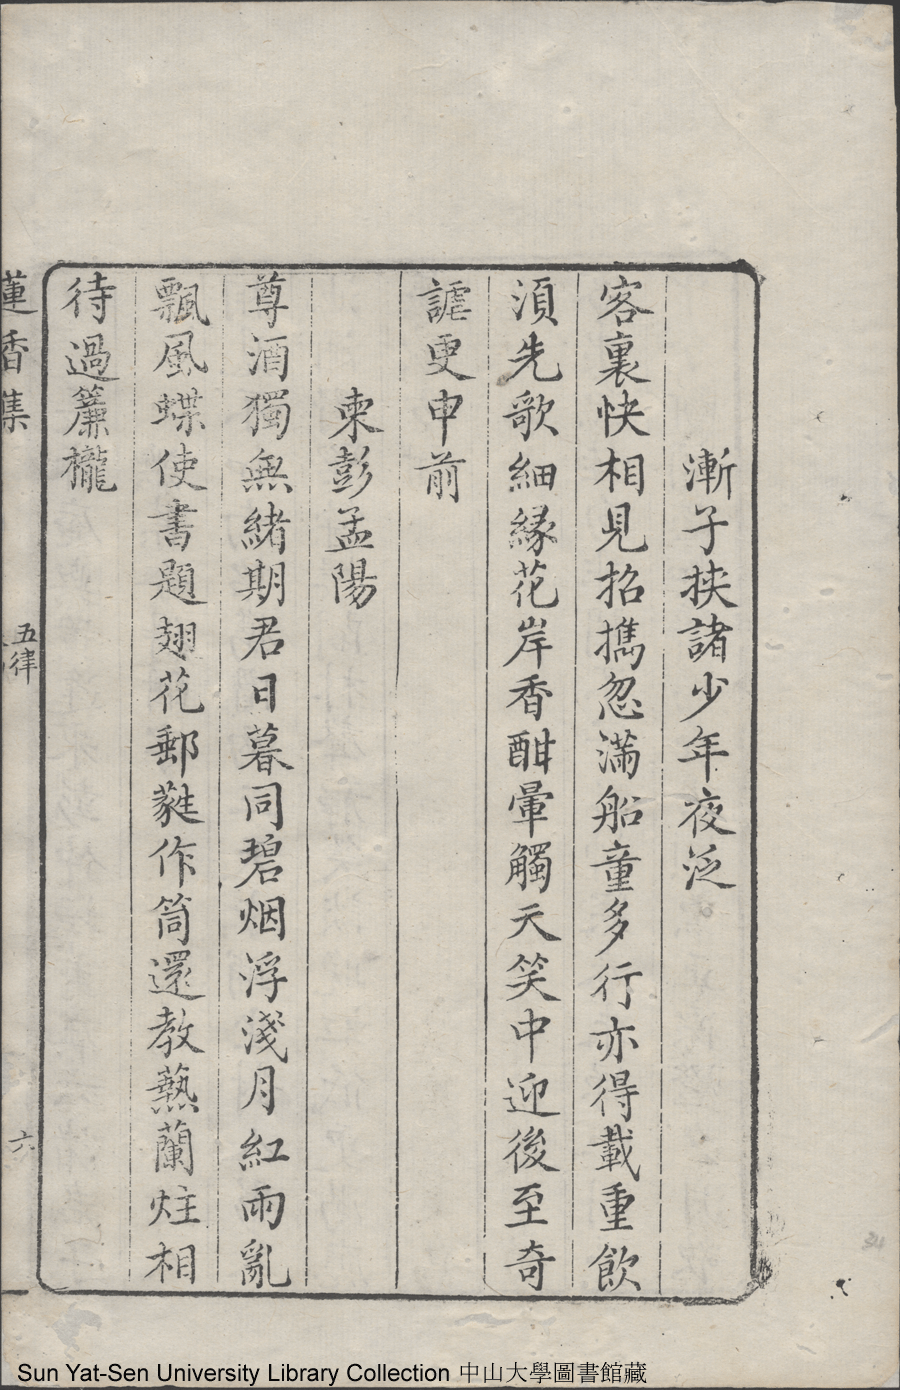 漸子挾諸少年夜泛
客裏快相見招攜忽滿船童多行亦得載重飲
須先歌細緣花岸香酣暈觸天笑中迎後至奇
謔更申前
柬彭孟陽
尊酒獨無緒期君日暮同碧烟浮淺月紅雨亂
飄風蝶使書題翅花郵蕤作筒還教爇蘭炷相
待過簾櫳
蓮香集
五律
六
Sun Yat-Sen University Library Collection 中山大學圖書館藏